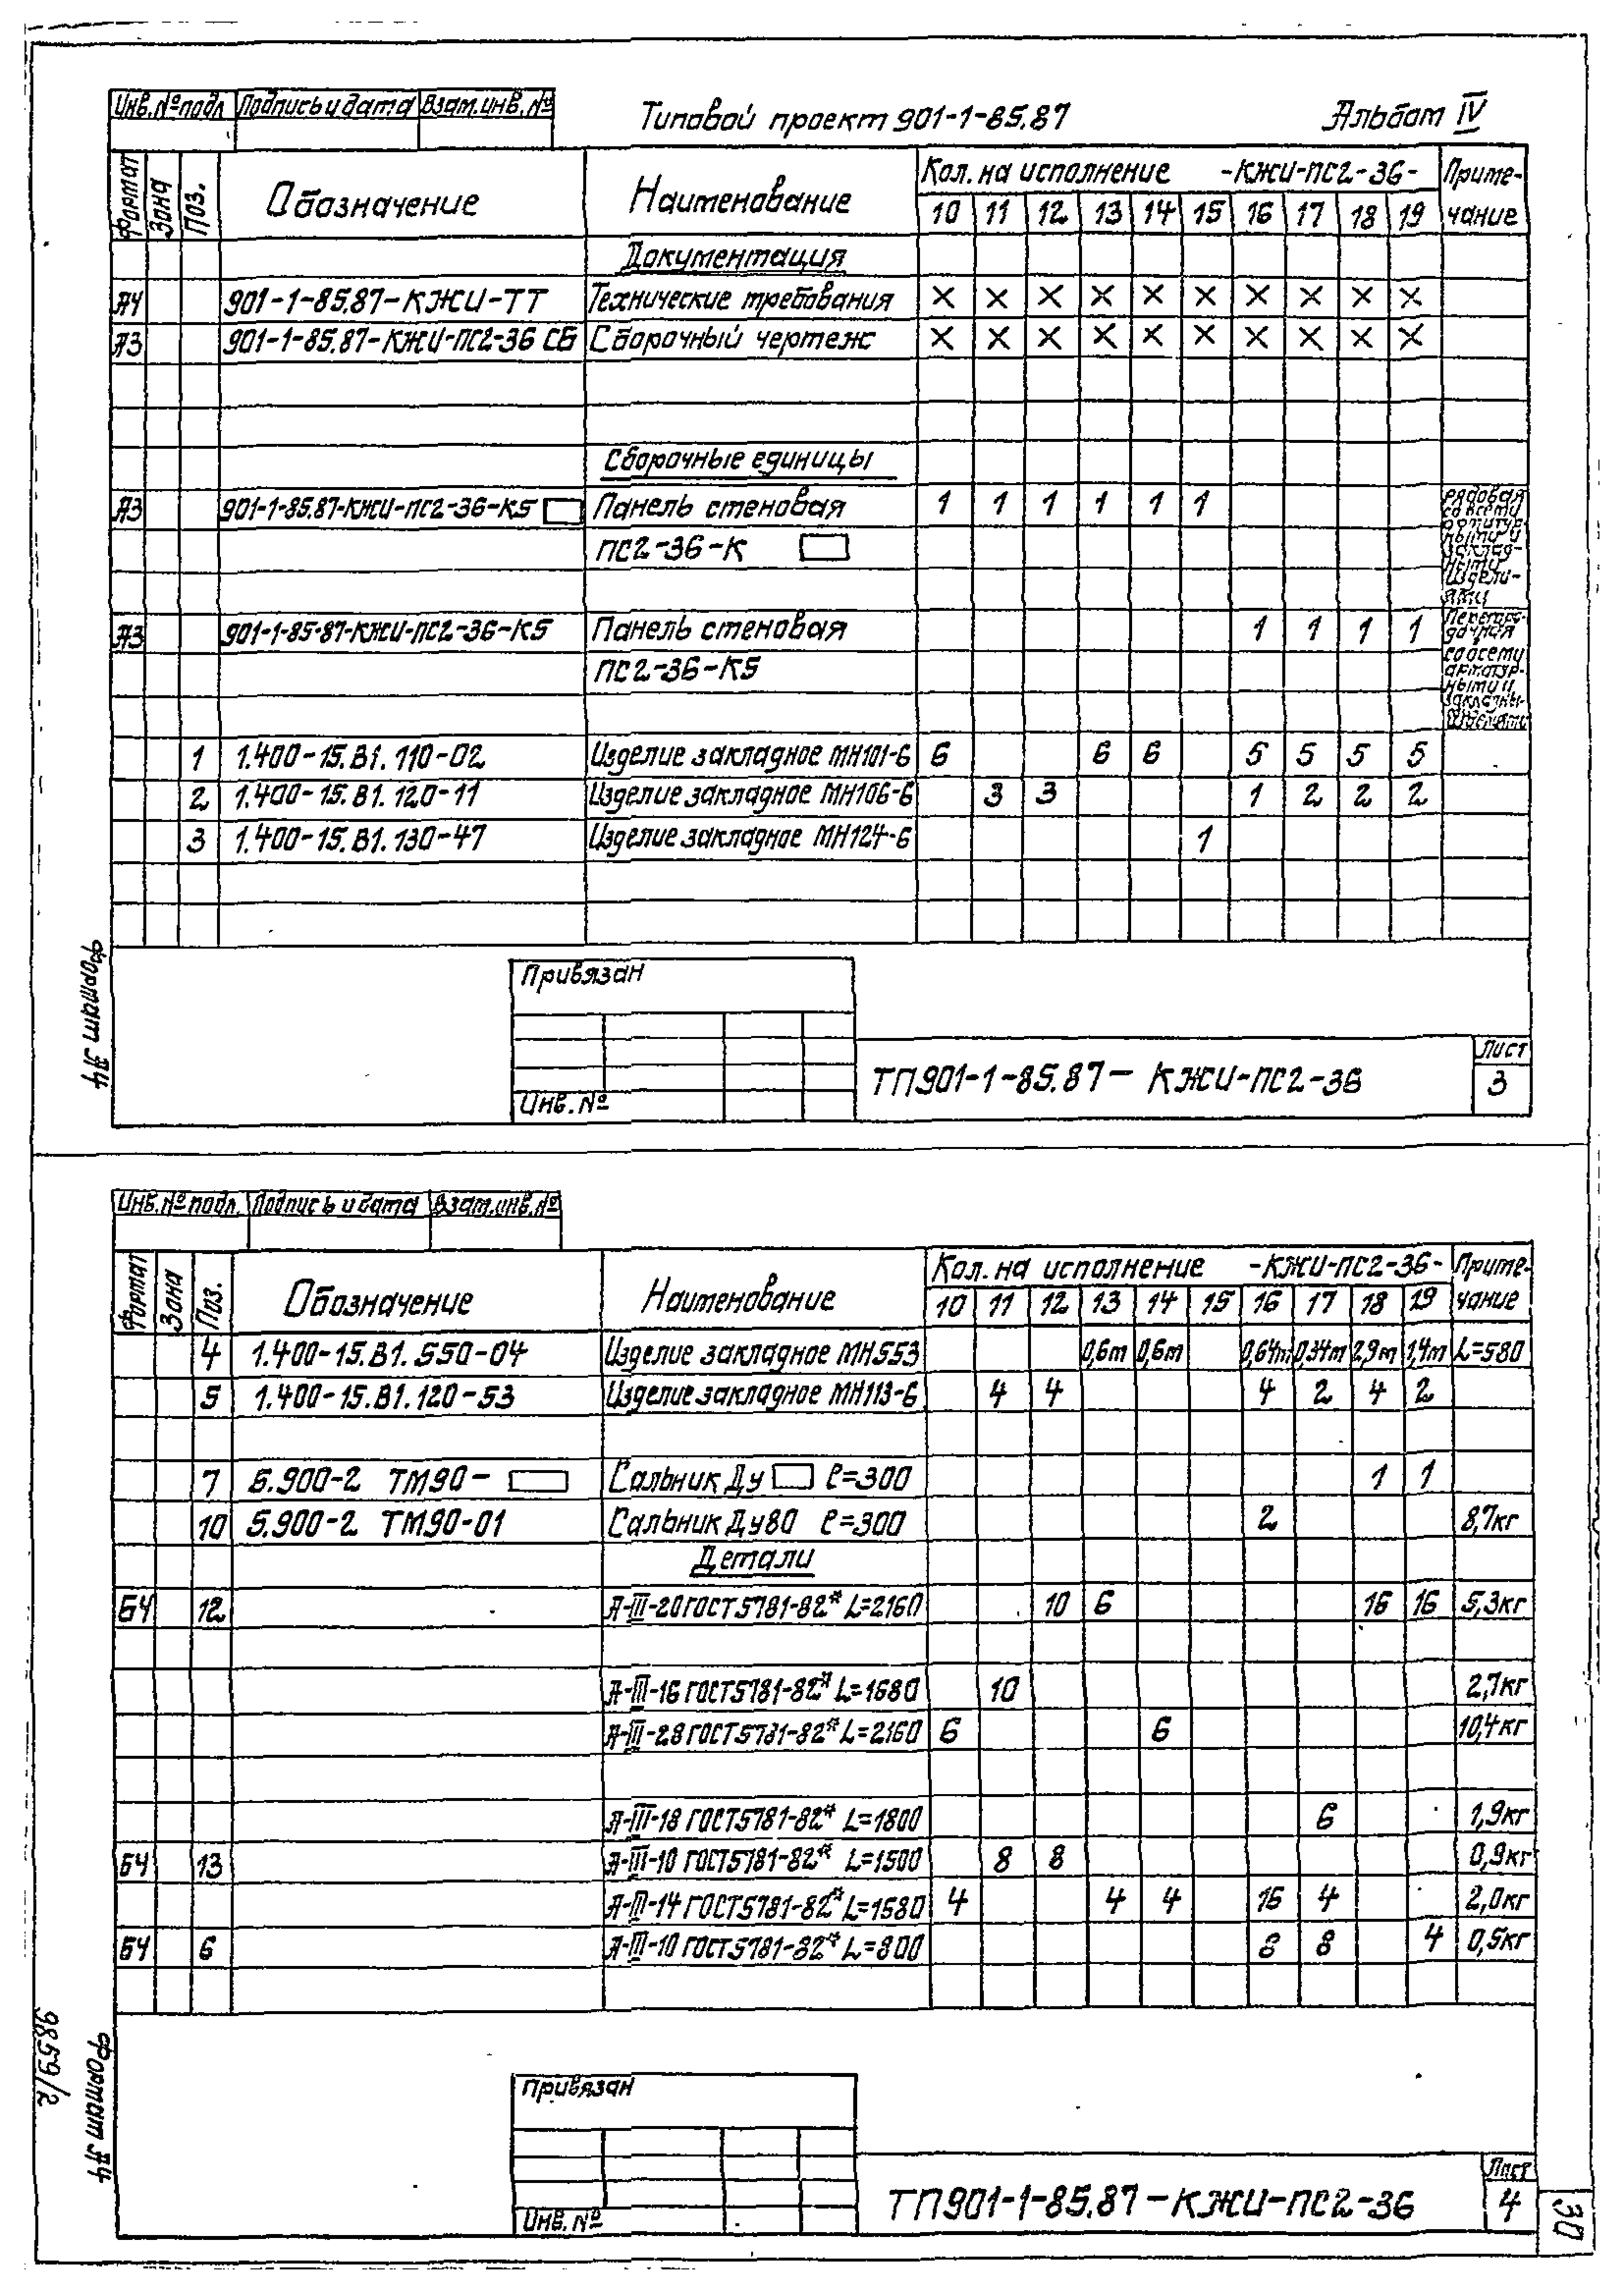 Инв.№ подл Подпись и дата Взам.инв.№
Типовой проект 901-1-85.87 Альбом IV
Формат Зона Поз. Обозначение Наименование Кол. на исполнение -КЖИ-ПС2-36- Приме-
10 11 12 13 14 15 16 17 18 19 чание
Документация
А4 901-1-85.87-КЖИ-ТТ Технические требования × × × × × × × × × ×
А3 901-1-85.87-КЖИ-ПС2-36 СБ Сборочный чертеж × × × × × × × × × ×
Сборочные единицы
А3 901-1-85.87-КЖИ-ПС2-36-К5 Панель стеновая 1 1 1 1 1 1 рядовая
со всеми
ПС2-36-К арматур-
ными и
заклад-
ными
издели-
ями
А3 901-1-85-87-КЖИ-ПС2-36-К5 Панель стеновая 1 1 1 1 Перегоро-
дочная
ПС2-36-К5 со всеми
арматур-
ными и
закладны-
изделями
1 1.400-15.В1.110-02 Изделие закладное МН101-6 6 6 6 5 5 5 5
2 1.400-15.В1.120-11 Изделие закладное МН106-6 3 3 1 2 2 2
3 1.400-15.В1.130-47 Изделие закладное МН124-6 1
Формат А4
Привязан
Инв.№
ТП901-1-85.87-КЖИ-ПС2-36
Лист
3
Инв.№ подл. Подпись и дата Взам.инв.№
Формат Зона Поз. Обозначение Наименование Кол. на исполнение -КЖИ-ПС2-36- Приме-
10 11 12 13 14 15 16 17 18 19 чание
4 1.400-15.В1.550-04 Изделие закладное МН553 0,6м 0,6м 0,64м 0,34м 2,9м 1,4м L=580
5 1.400-15.В1.120-53 Изделие закладное МН113-6 4 4 4 2 4 2
7 5.900-2 ТМ90- Сальник Ду ℓ=300 1 1
10 5.900-2 ТМ90-01 Сальник Ду80 ℓ=300 2 8,7кг
Детали
БЧ 12 А-III-20 ГОСТ 5781-82* L=2160 10 6 16 16 5,3кг
А-III-16 ГОСТ 5781-82* L=1680 10 2,7кг
А-III-28 ГОСТ 5781-82* L=2160 6 6 10,4кг
А-III-18 ГОСТ 5781-82* L=1800 6 1,9кг
БЧ 13 А-III-10 ГОСТ 5781-82* L=1500 8 8 0,9кг
А-III-14 ГОСТ 5781-82* L=1680 4 4 4 16 4 2,0кг
БЧ 6 А-III-10 ГОСТ 5781-82* L=800 8 8 4 0,5кг
9859/2
Формат А4
Привязан
Инв.№
ТП901-1-85.87-КЖИ-ПС2-36
Лист
4
30